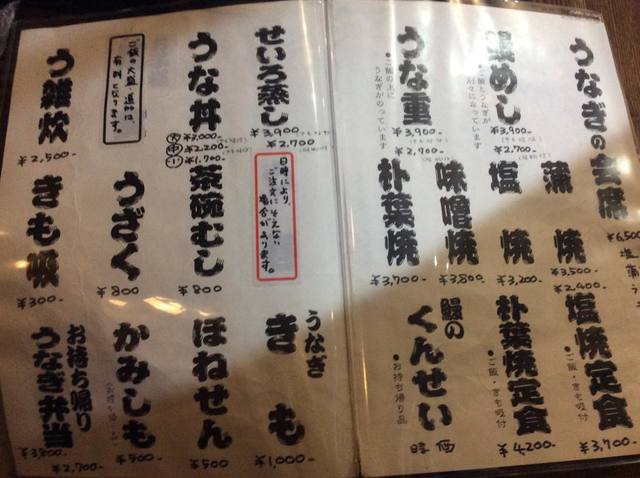 うなぎの会席
¥6,500-
蒲焼
¥3,500-
¥2,400-
塩焼定食
●ご飯・きも吸付
¥3,700-
●ご飯とうなぎが
別々になっています
¥3,900-
¥2,700
塩焼
¥3,200-
朴葉焼定食
●ご飯・きも吸付
¥4200-
味噌焼
¥3,800-
鰻の
くんせい
●お持ち帰り品
時価
うな重
●ご飯の上に
うなぎがのっています
¥3,900-
¥2,700
朴葉焼
¥3,700-
せいろ蒸し
¥3,900
¥2,700
日時により、
ご注文にそえない
場合があります。
うなぎ
きも
¥1,000-
うな丼
大
中
小
¥2,200-
¥1,700-
茶碗むし
¥800
ほねせん
¥500
ご飯の大盛・追加は、
有料となります。
うざく
¥800
かみしも
¥500-
う雑炊
¥2,500-
きも吸
¥300-
お持ち帰り
うなぎ弁当
¥3,800-
¥2,700-